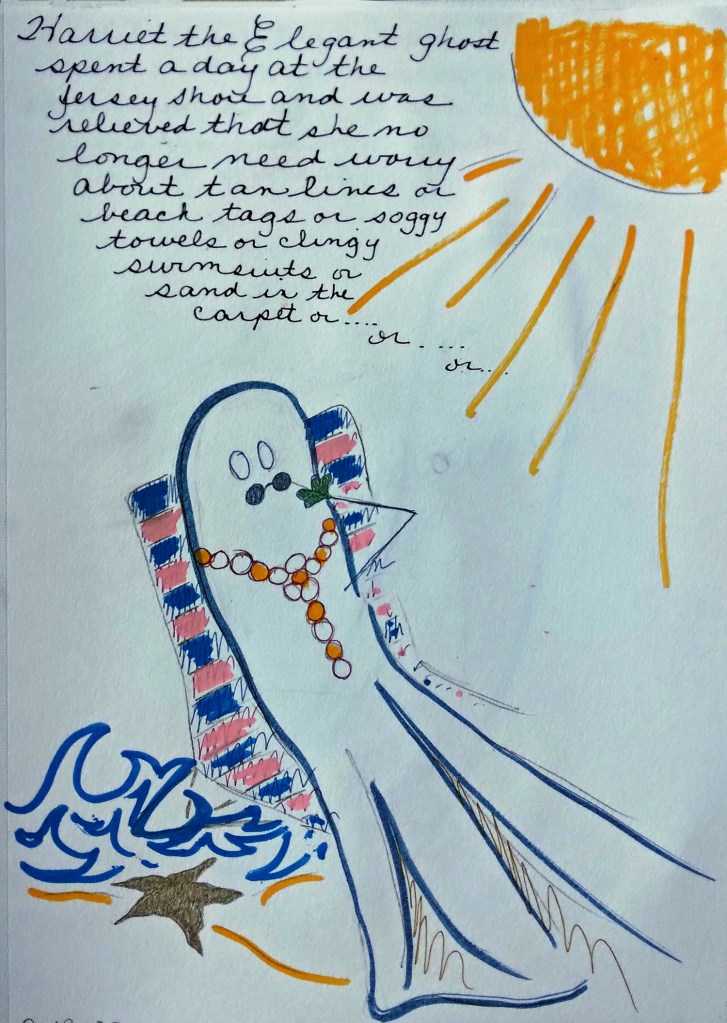 Harriet the Elegant ghost
spent a day at the
Jersey shore and was
relieved that she no
longer need worry
about tan lines or
beach tags or soggy
towels or clingy
swimsuits or
sand in the
carpet or....
or. ...
or...